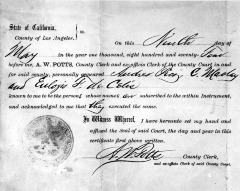 State of California,
County of Los Angeles, } ss.
On this Ninth day of
May in the year one thousand, eight hundred and seventy
before me, A. W. POTTS, County Clerk, and ex-officio Clerk of the County Court in and
for said county, personally appeared Andres Pico,
and Eulogio F. de Celis
known to me to be the persons whose names are subscribed to the within Instrument,
and acknowledged to me that they executed the same.
In Witness Whereof, I have hereunto set my hand and
affixed the Seal of said Court, the day and year in this
certificate first above written.
A. W. Potts
County Clerk,
and ex-officio Clerk of said County Court.